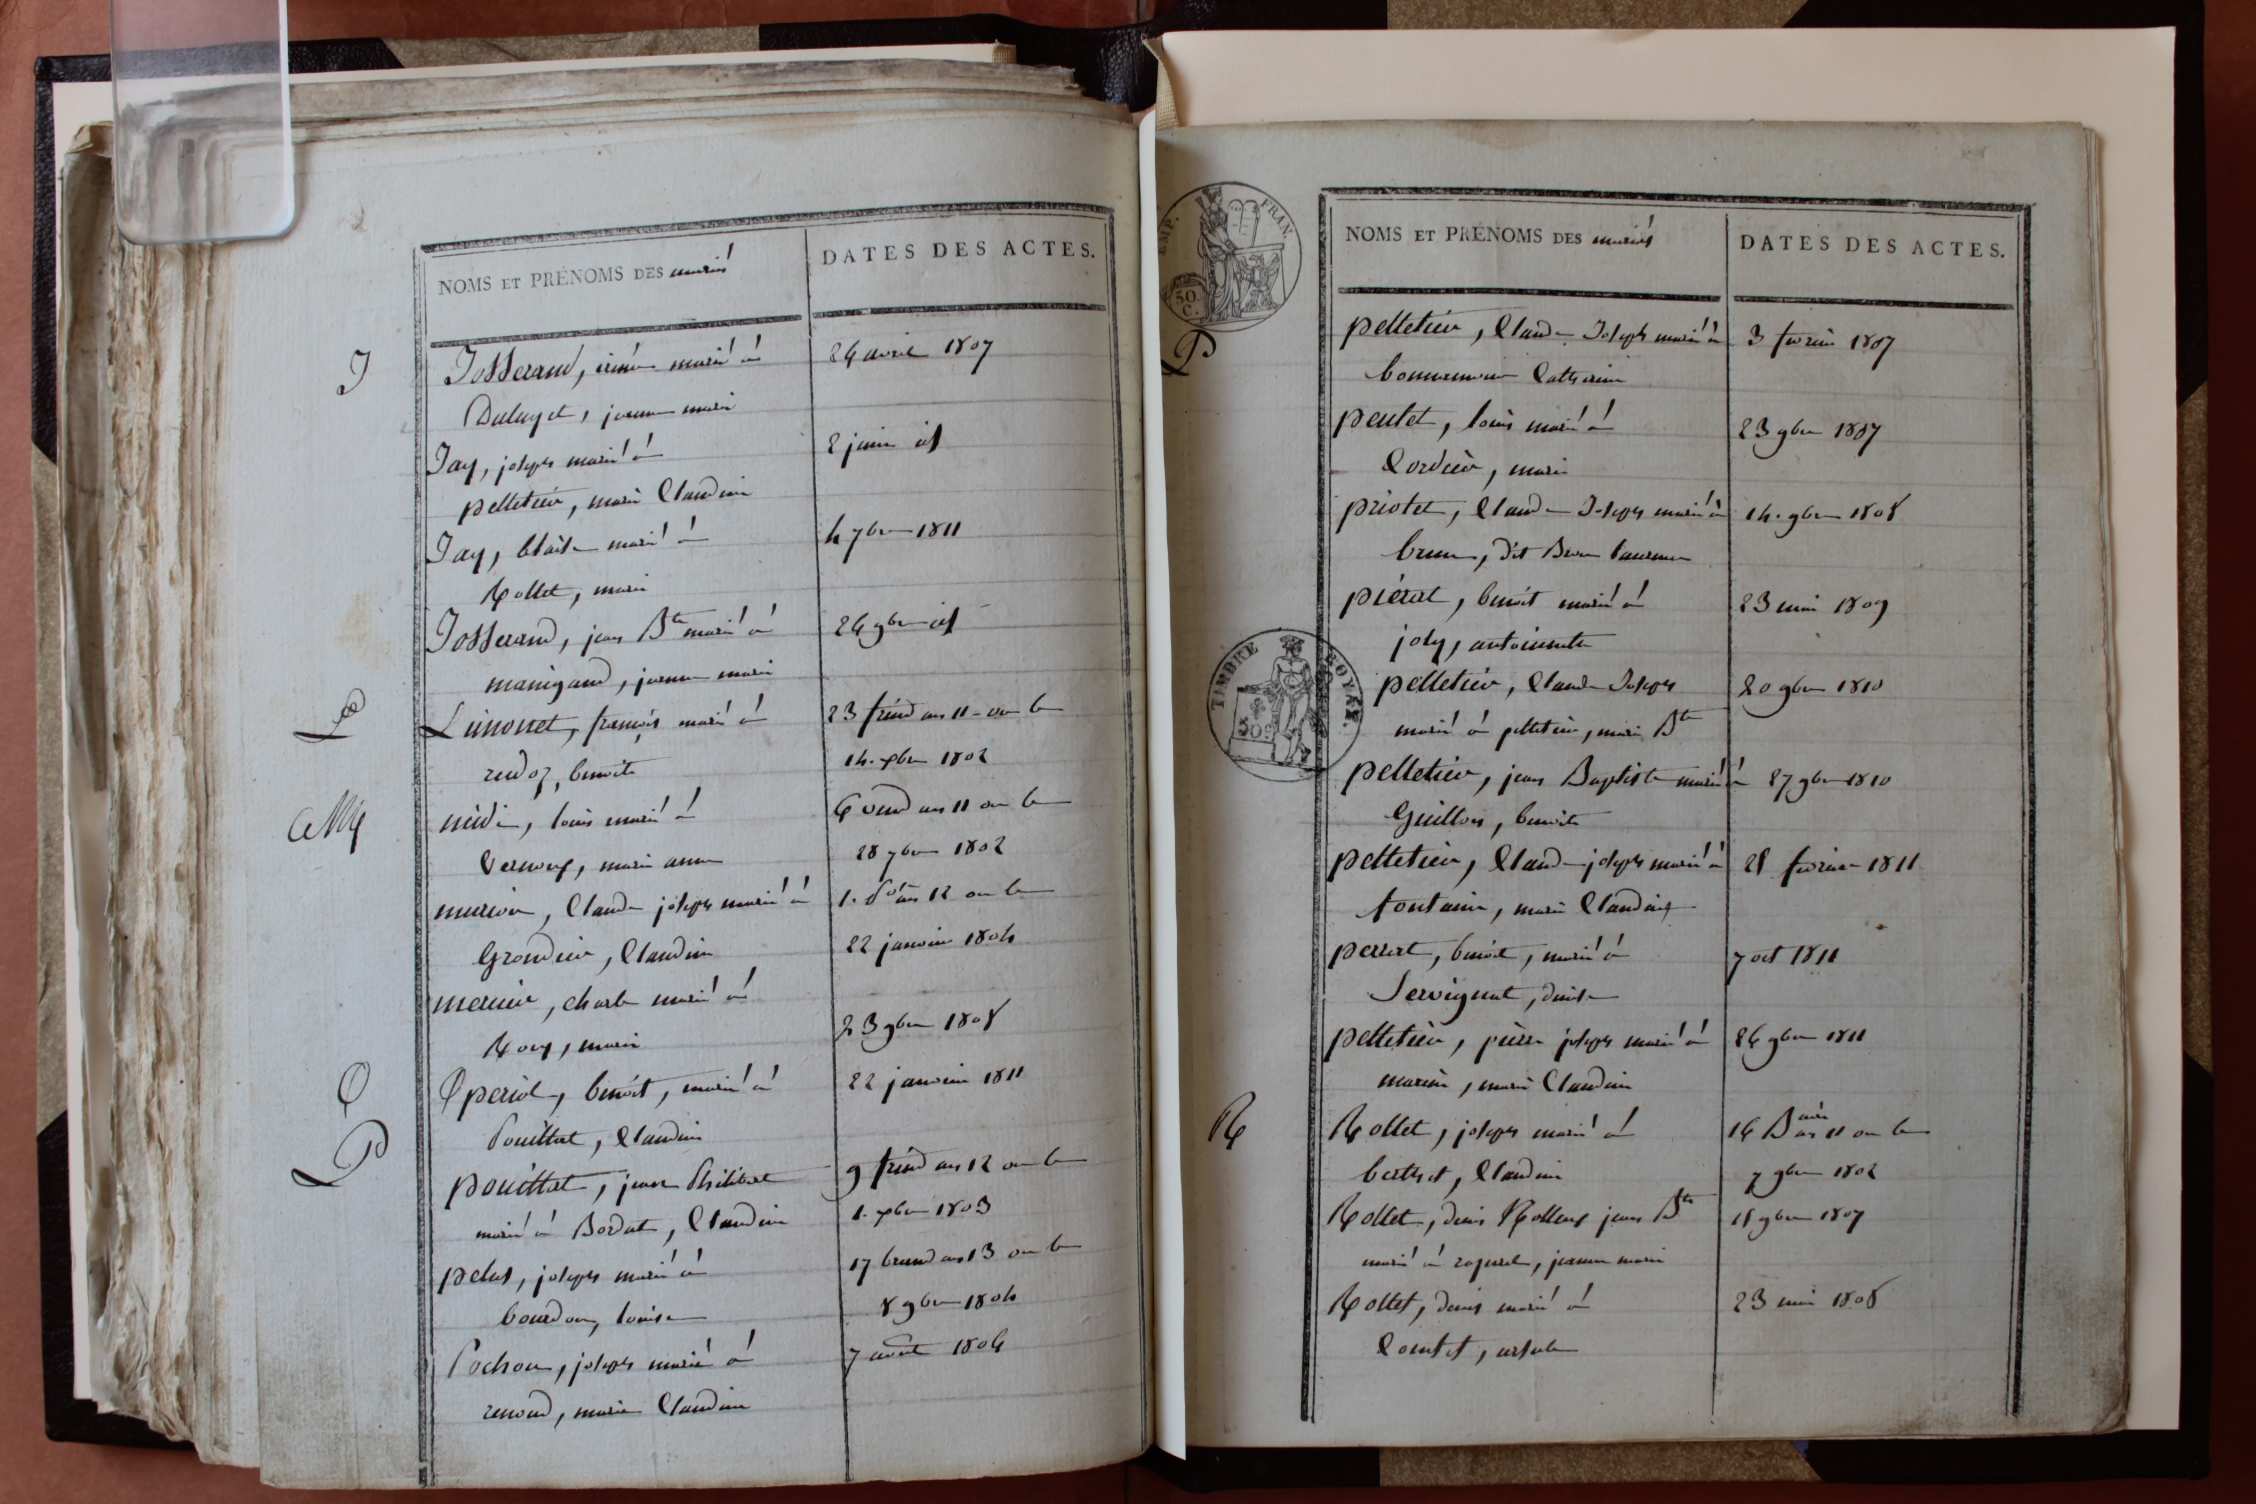 NOMS ET PRÉNOMS DES mariés
DATES DES ACTES.
J
Josserand, irénée marié à
24 avril 1807
Dalayet, jeanne marie
Jay, joseph marié à
2 juin id
pelletier, marie Claudine
Jay, blaise marié à
4 7bre 1811
Rollet, marie
Josserand, jean Bte marié à
24 9bre id
manigand, jeanne marie
L
Limonet, françois marié à
23 frimd an 11 ou le
rudoz, benoite
14. xbre 1802
M
midi, louis marié à
6 vend an 11 ou le
Vernoux, marie anne
28 7bre 1802
mercier, Claude joseph marié à
1. an 12 ou le
Grondier, Claudine
22 janvier 1804
mercier, charle marié à
Roux, marie
23 9bre 1808
O
Operiol, benoit, marié à
22 janvier 1811
Pouillat, Claudine
P
pouillat, jean Philibert
9 frimd an 12 ou le
marié à Bordat, Claudine
1. xbre 1803
pelus, joseph marié à
17 brumd an 13 ou le
bourdon, louise
8 9bre 1804
Pochon, joseph marié à
7 août 1806
renoud, marie Claudine
EMP. FRAN.
50. C.
NOMS ET PRÉNOMS DES mariés
DATES DES ACTES.
P
pelletier, Claude Joseph marié à
3 fevrier 1807
bonnamour Catherine
peulet, louis marié à
23 9bre 1807
Cordier, marie
priotet, Claude Joseph marié à
14. 9bre 1808
brun, dit Brun laurence
piérat, benoit marié à
23 mai 1809
joly, antoinette
TIMBRE ROYAL.
50c
pelletier, Claude Joseph
20 9bre 1810
marié à pelletier, marie Bte
pelletier, jean Baptiste marié à
27 9bre 1810
Guillon, benoite
pelletier, Claude joseph marié à
21 fevrier 1811
fontaine, marie Claudine
perrat, benoit, marié à
7 oct 1811
Servignat, denise
pelletier, pierre joseph marié à
26 9bre 1811
marion, marie Claudine
R
Rollet, joseph marié à
16 Baire an 11 ou le
berthet, Claudine
7 9bre 1802
Rollet, denis Rolleux jean Bte
11 9bre 1807
marié à jeanne marie
Rollet, denis marié à
23 mai 1808
Comtet, ursule